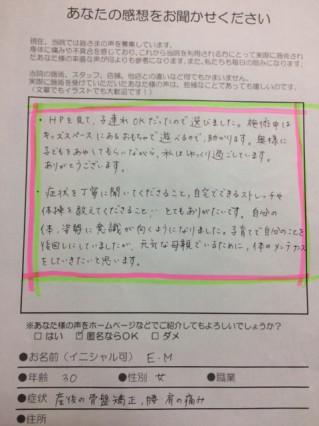 あなたの感想をお聞かせください
現在、当院では皆さまの声を募集しています。
身体に痛みや不具合を感じており、これから当院を利用される方にとって実際に施術され
たあなた様の率直な声が何よりも参考になります。また、私たちも毎日の励みになります。
当院の施術、スタッフ、店舗、他店との違いなど何でもかまいません。
実際に施術を受けていただいたあなた様の声は、些細なことであっても嬉しいのです。
(文章でもイラストでも大歓迎です!)
・HPを見て、子連れOKだったので選びました。施術中は
キッズスペースにあるおもちゃで遊べるので、助かります。奥様に
子どもをあやしてもらいながら、私はゆっくり過ごしています。
ありがとうございます。
・症状を丁寧に聞いてくださること、自宅でできるストレッチや
体操を教えてくださること…とてもありがたいです。自分の
体、姿勢に意識が向くようになりました。子育てで自分のことを
後回しにしていましたが、元気な母親でいるために、体のメンテナンス
をしていきたいと思います。
※あなた様の声をホームページなどでご紹介してもよろしいでしょうか?
□はい ☑匿名ならOK □ダメ
●お名前(イニシャル可) E・M
●年齢 30 ●性別 女 ●職業
●症状 産後の骨盤矯正、腰肩の痛み
●住所